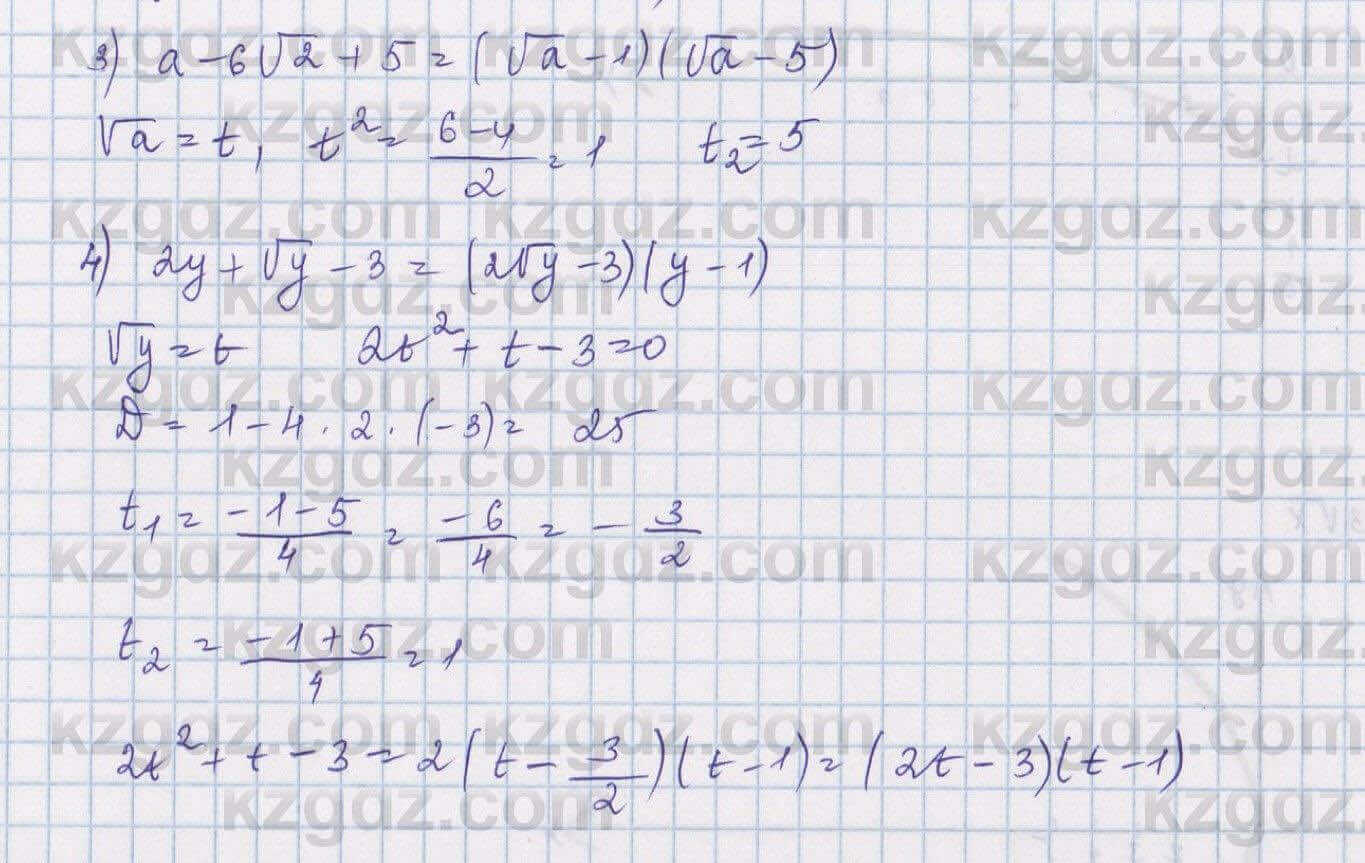 3) a - 6√2 + 5 = (√a - 1)(√a - 5)
√a = t, t² = (6-4)/2 = 1 t₂ = 5
4) 2y + √y - 3 = (2√y - 3)(y - 1)
√y = t 2t² + t - 3 = 0
D = 1 - 4 · 2 · (-3) = 25
t₁ = (-1-5)/4 = -6/4 = - 3/2
t₂ = (-1+5)/4 = 1
2t² + t - 3 = 2(t - 3/2)(t - 1) = (2t - 3)(t - 1)
kzgdz.com